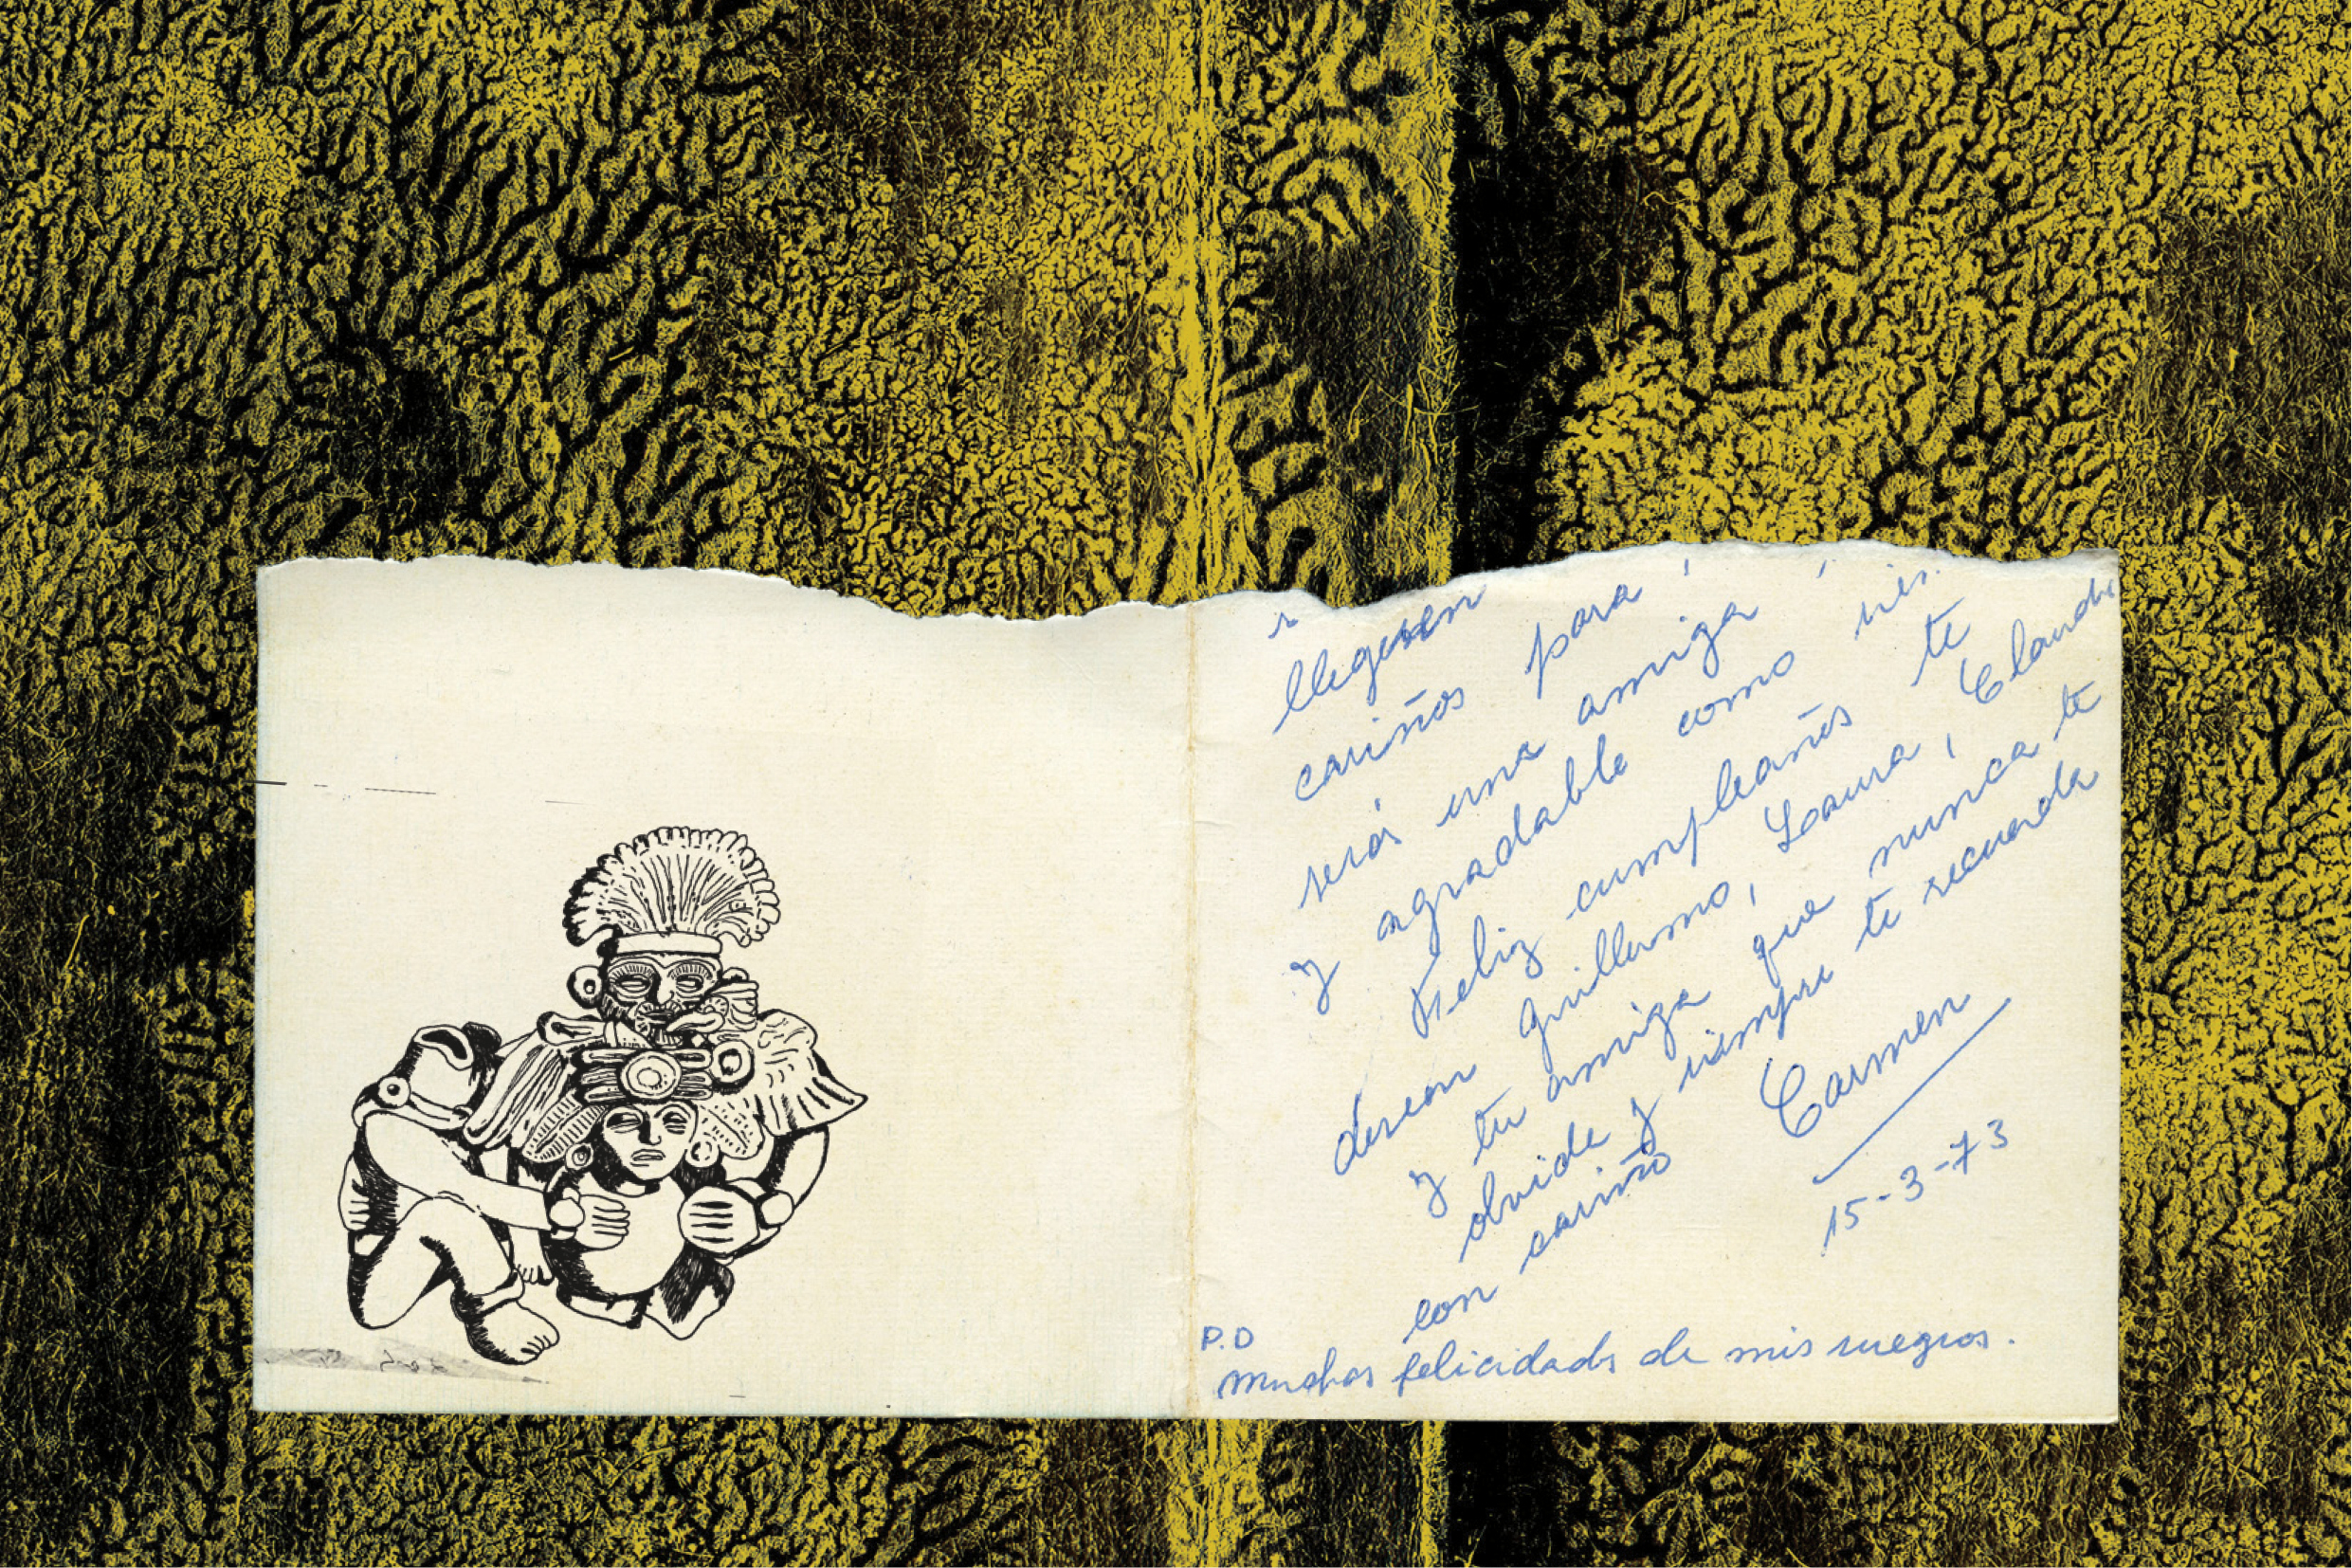 lleguen
cariños para
será una amiga
y agradable como
Feliz cumpleaños te
desean Guillermo, Laura, Claudi
y tu amiga que nunca te
olvida y siempre te recuerda
con cariño Carmen
15-3-73
P.D
muchas felicidads de mis suegros.